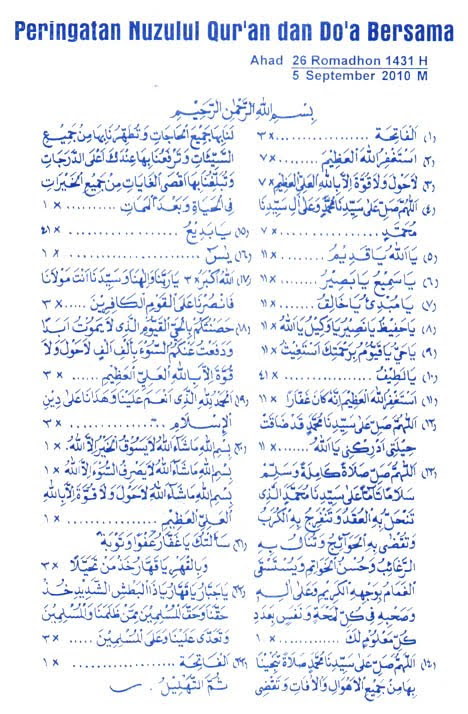 Peringatan Nuzulul Qur'an dan Do'a Bersama
Ahad 26 Romadhon 1431 H
5 September 2010 M
بِسْمِ اللهِ الرَّحْمٰنِ الرَّحِيْمِ
(١) اَلْفَاتِحَة ............... ×٣
(٢) اَسْتَغْفِرُ اللهَ الْعَظِيْمَ ........ ×٧
(٣) لَاحَوْلَ وَلَا قُوَّةَ اِلَّا بِاللهِ الْعَلِيِّ الْعَظِيْمِ ×٧
(٤) اَللّٰهُمَّ صَلِّ عَلٰى سَيِّدِنَا مُحَمَّدٍ وَعَلٰى اٰلِ سَيِّدِنَا
مُحَمَّدٍ ............... ×٧
(٥) يَا اَللهُ يَا قَدِيْمُ ........ ×١١
(٦) يَا سَمِيْعُ يَا بَصِيْرُ ........ ×١١
(٧) يَا مُبْدِئُ يَا خَالِقُ ........ ×١١
(٨) يَا حَفِيْظُ يَا نَصِيْرُ يَا وَكِيْلُ يَا اَللهُ ×١١
(٩) يَا حَيُّ يَا قَيُّوْمُ بِرَحْمَتِكَ اَسْتَغِيْثُ ×١١
(١٠) يَا لَطِيْفُ ............... ×٤١
(١١) اَسْتَغْفِرُ اللهَ الْعَظِيْمَ اِنَّهُ كَانَ غَفَّارًا ×١١
(١٢) اَللّٰهُمَّ صَلِّ عَلٰى سَيِّدِنَا مُحَمَّدٍ قَدْ ضَاقَتْ
حِيْلَتِيْ اَدْرِكْنِيْ يَا اَللهُ ...... ×١١
(١٣) اَللّٰهُمَّ صَلِّ صَلَاةً كَامِلَةً وَسَلِّمْ
سَلَامًا تَامًّا عَلٰى سَيِّدِنَا مُحَمَّدٍ الَّذِيْ
تَنْحَلُّ بِهِ الْعُقَدُ وَتَنْفَرِجُ بِهِ الْكُرَبُ
وَتُقْضٰى بِهِ الْحَوَائِجُ وَتُنَالُ بِهِ
الرَّغَائِبُ وَحُسْنُ الْخَوَاتِمِ وَيُسْتَسْقَى
الْغَمَامُ بِوَجْهِهِ الْكَرِيْمِ وَعَلٰى اٰلِهِ
وَصَحْبِهِ فِيْ كُلِّ لَمْحَةٍ وَنَفَسٍ بِعَدَدِ
كُلِّ مَعْلُوْمٍ لَكَ ............ ×١
(١٤) اَللّٰهُمَّ صَلِّ عَلٰى سَيِّدِنَا مُحَمَّدٍ صَلَاةً تُنْجِيْنَا
بِهَا مِنْ جَمِيْعِ الْاَهْوَالِ وَالْاٰفَاتِ وَتَقْضِيْ
لَنَا بِهَا جَمِيْعَ الْحَاجَاتِ وَتُطَهِّرُنَا بِهَا مِنْ جَمِيْعِ
السَّيِّئَاتِ وَتَرْفَعُنَا بِهَا عِنْدَكَ اَعْلَى الدَّرَجَاتِ
وَتُبَلِّغُنَا بِهَا اَقْصَى الْغَايَاتِ مِنْ جَمِيْعِ الْخَيْرَاتِ
فِي الْحَيَاةِ وَبَعْدَ الْمَمَاتِ ...... ×١
(١٥) يَا بَدِيْعُ ............... ×٤١
(١٦) يٰسٓ ............... ×١
(١٧) اَللهُ اَكْبَرُ ×٣ يَا رَبَّنَا وَاِلٰهَنَا وَسَيِّدَنَا اَنْتَ مَوْلَانَا
فَانْصُرْنَا عَلَى الْقَوْمِ الْكَافِرِيْنَ ..... ×٣
(١٨) حَصَّنْتُكُمْ بِالْحَيِّ الْقَيُّوْمِ الَّذِيْ لَا يَمُوْتُ اَبَدًا
وَدَفَعْتُ عَنْكُمُ السُّوْءَ بِاَلْفِ اَلْفِ لَاحَوْلَ وَلَا
قُوَّةَ اِلَّا بِاللهِ الْعَلِيِّ الْعَظِيْمِ ..... ×٣
(١٩) اَلْحَمْدُ لِلّٰهِ الَّذِيْ اَنْعَمَ عَلَيْنَا وَهَدَانَا عَلٰى دِيْنِ
الْاِسْلَامِ ............... ×٣
(٢٠) بِسْمِ اللهِ مَاشَآءَ اللهُ لَا يَسُوْقُ الْخَيْرَ اِلَّا اللهُ ×١
بِسْمِ اللهِ مَاشَآءَ اللهُ لَا يَصْرِفُ السُّوْءَ اِلَّا اللهُ ×١
بِسْمِ اللهِ مَاشَآءَ اللهُ لَاحَوْلَ وَلَا قُوَّةَ اِلَّا بِاللهِ
الْعَلِيِّ الْعَظِيْمِ ............... ×١
(٢١) سَأَلْتُكَ يَا غَفَّارُ عَفْوًا وَتَوْبَةً
وَبِالْقَهْرِ يَا قَهَّارُ خُذْ مَنْ تَحَيَّلَا ×٣
(٢٢) يَا جَبَّارُ يَا قَهَّارُ يَا ذَا الْبَطْشِ الشَّدِيْدِ خُذْ
حَقَّنَا وَحَقَّ الْمُسْلِمِيْنَ مِمَّنْ ظَلَمَنَا وَالْمُسْلِمِيْنَ
وَتَعَدّٰى عَلَيْنَا وَعَلَى الْمُسْلِمِيْنَ ..... ×٣
(٢٣) اَلْفَاتِحَة ............... ×١
ثُمَّ التَّهْلِيْلُ .